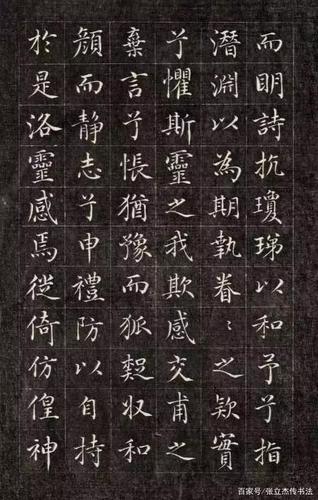 而明詩抗瓊珶以和予兮指
潛淵以為期執眷〻之款實
兮懼斯靈之我欺感交甫之
棄言兮悵猶豫而狐疑收和
顏而静志兮申禮防以自持
於是洛靈感焉徙倚仿偟神
百家号/张立杰传书法